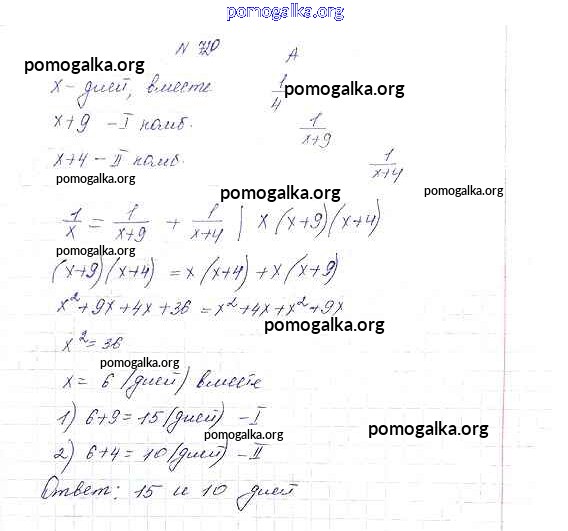 pomogalka.org
N 720 A
pomogalka.org
x - дней, вместе 1/4 pomogalka.org
x+9 - I комб. 1/(x+9)
x+4 - II комб. 1/(x+4)
pomogalka.org pomogalka.org pomogalka.org
1/x = 1/(x+9) + 1/(x+4) | x(x+9)(x+4)
pomogalka.org
(x+9)(x+4) = x(x+4)+x(x+9)
x²+9x+4x+36 = x²+4x+x²+9x
pomogalka.org
x²=36
pomogalka.org
x = 6 (дней) вместе
1) 6+9=15 (дней) - I
pomogalka.org pomogalka.org
2) 6+4=10 (дней) - II
Ответ: 15 и 10 дней